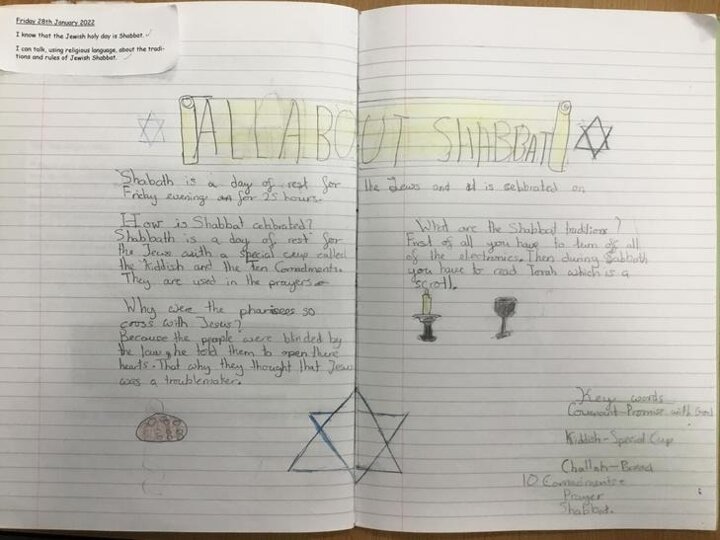 Friday 28th January 2022
I know that the Jewish holy day is Shabbat.
I can talk, using religious language, about the tradi-
tions and rules of Jewish Shabbat.
ALL ABOUT SHABBAT
Shabath is a day of rest for the Jews and it is celbrated on
Friday evening for 25 hours.
How is Shabbat celbrated?
Shabbath is a day of rest for
the Jews with a special cup called
the Kiddish and the Ten Comadments.
They are used in the prayers.
Why were the pharisees so
cross with Jesus?
Because the people were blinded by
the law, he told them to open there
hearts. That why they thought that Jesus
was a troublemaker.
What are the Shabbat traditions?
First of all you have to turn of all
of the electronics. Then during Sabbath
you have to read Torah which is a
scroll.
Key words
Covenant-Promise with God
Kiddish-Special Cup
Challah-Bread
10
Prayer
Shabbat.